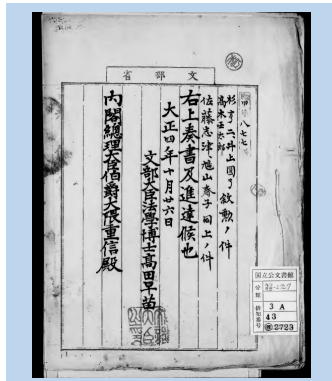 文部省
甲 八七七
杉亨二外五国ヲ叙勲ノ件
高木壬太郎
佐藤志津 旭山春子 同上ノ件
右上奏書及進達候也
大正四年十月廿六日
文部大臣法學博士高田早苗
内閣總理大臣伯爵大隈重信殿
国立公文書館
分類
排架番号
3 A
43
2723